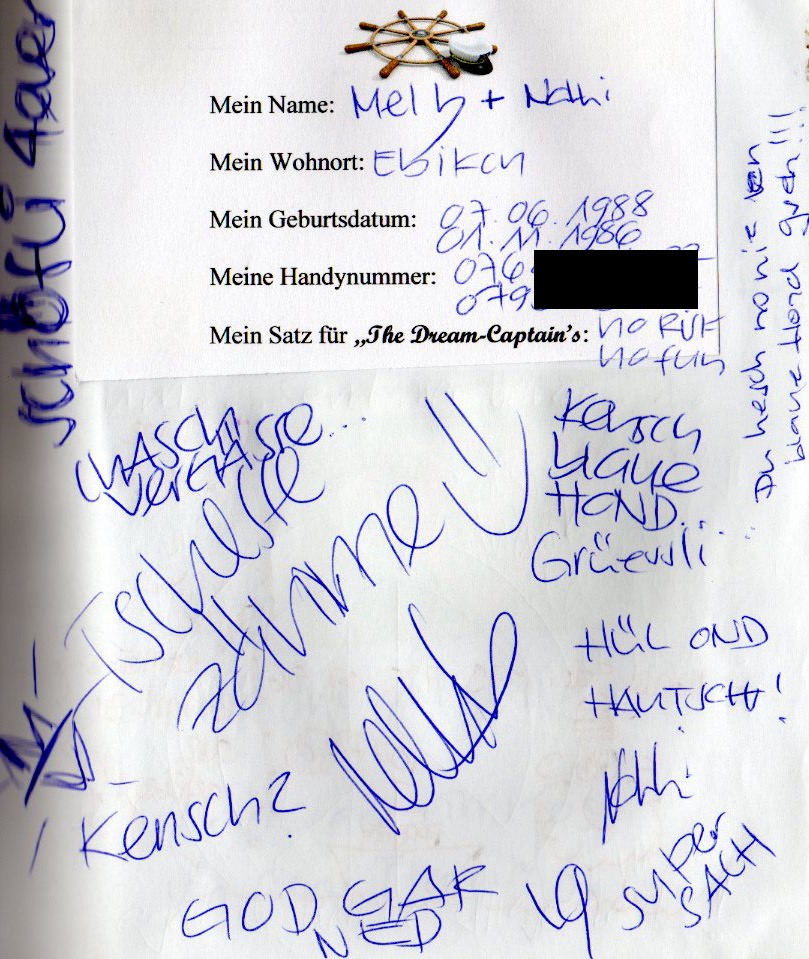 Mein Name: Melly + Nathi
Mein Wohnort: Ebikon
Mein Geburtsdatum: 07.06.1988
01.11.1986
Meine Handynummer: 076
079
Mein Satz für „The Dream-Captain's: no RiSK
no fun
Du hesch no nie en
blaue Hond gseh!!!
WASCH
VERGÄSSE...
TSCHESSE
ZÄMME
Kensch
blaue
HOND...
Grüessli...
HÜL OND
HAUTSCH!
Nathi
Kensch?
GOD GAR
NED
super
SACH